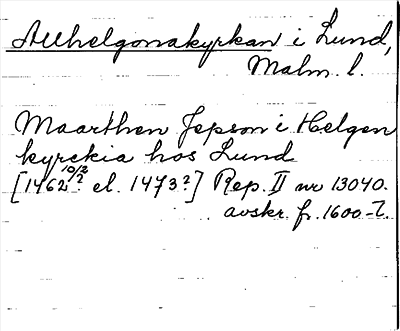 Allhelgonakyrkan i Lund,
Malm. l.
Maarthen Jepson i Helgen
kyrckia hos Lund
[1462 10/2? el. 1473?] Rep. II nr 13040.
avskr. fr. 1600-t.